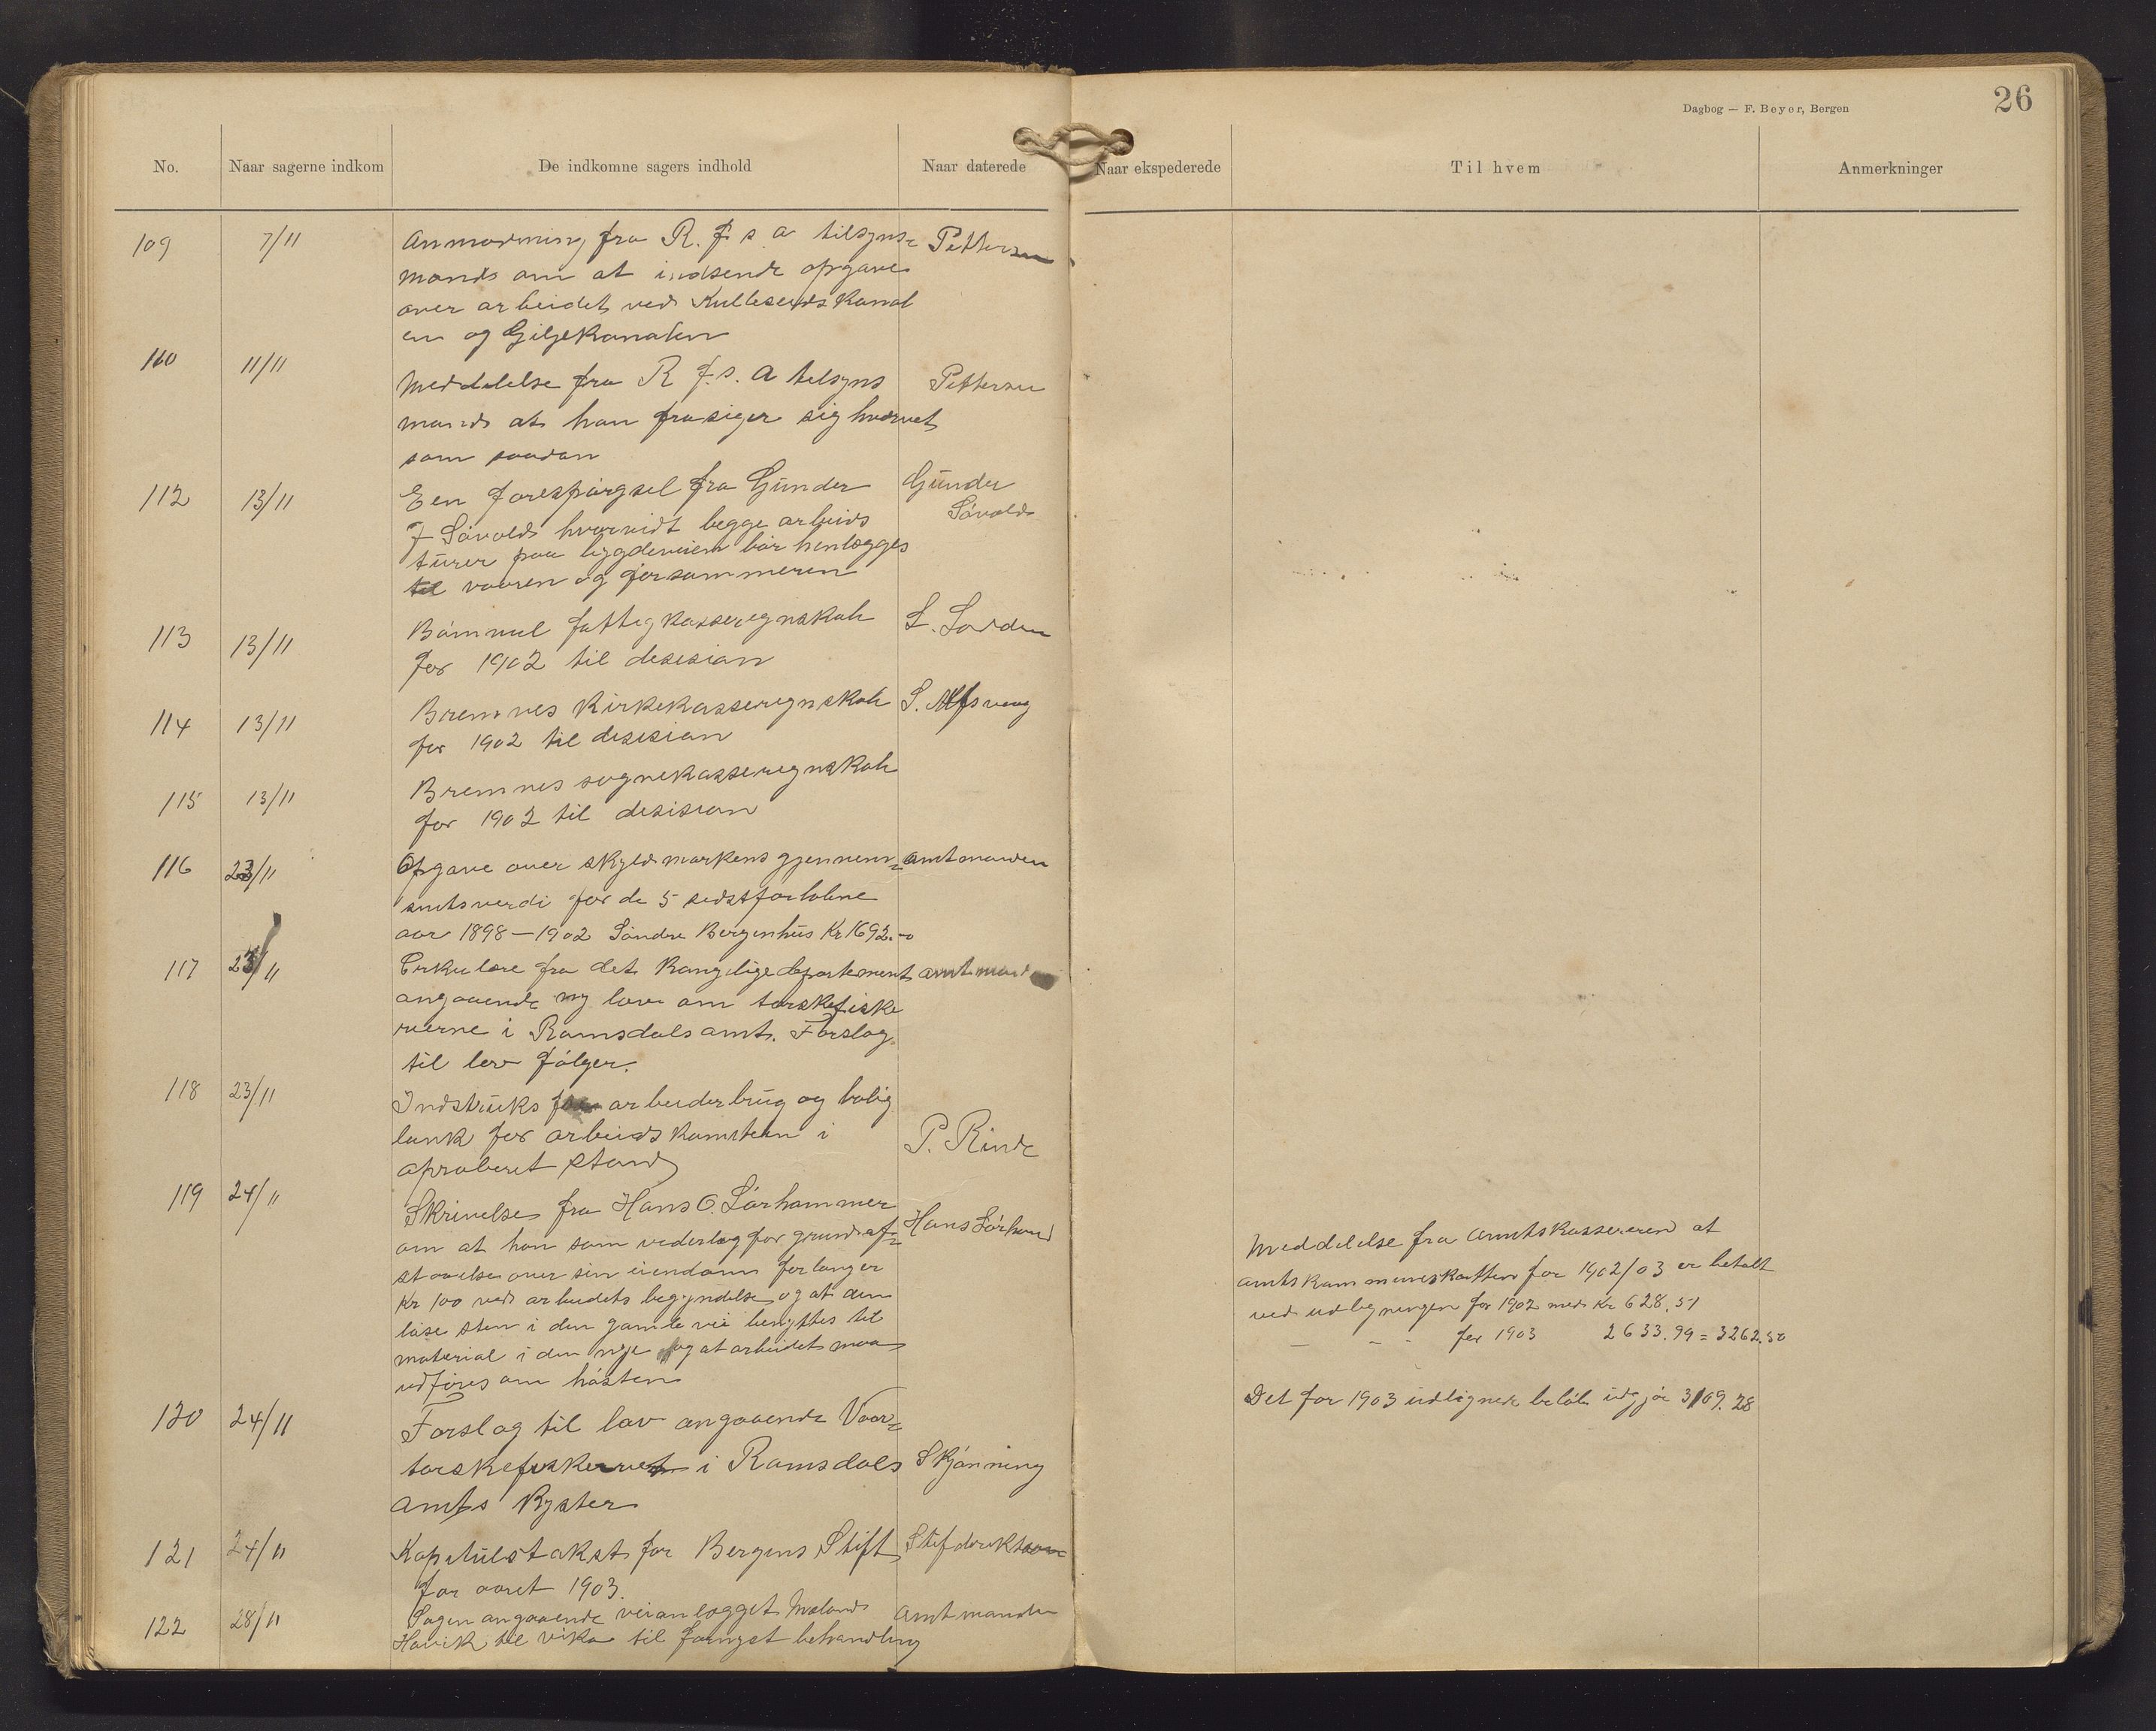 Dagbog — F. Beyer, Bergen
26
No. Naar sagerne indkom De indkomne sagers indhold Naar daterede Naar ekspederede Til hvem Anmerkninger
109 7/11 Anmodning fra R. f s a tilsyns= Pettersen
mands om at indsende opgave
over arbeidet ved Kulleseids Kanal
en og Giljekanalen
110 11/11 Meddelelse fra R f. s. a tilsyns Pettersen
mands at han frasiger sig hvervet
som saadan
112 13/11 Een forespørgsel fra Gunder Gunder
J Såvold hvorvidt begge arbeids Såvold
turer paa bygdeveien bør henlægges
til vaaren og forsommeren
113 13/11 Bømmel fattigkasseregnskab L.
for 1902 til desision
114 13/11 Bremnes Kirkekasseregnskab S. Alfsvaag
for 1902 til desision
115 13/11 Bremnes sognekasseregnskab
for 1902 til desision
116 23/11 Opgave over skyldmarkens gjennem= amtmanden
snitsverdi for de 5 sidstforløbne
aar 1898–1902 Søndre Bergenhus Kr 1692.
117 23/11 Cirkulære fra det Kongelige departement amtmand
angaaende ny lov om torskefiske
rierne i Romsdals amt. Forslag
til lov følger.
118 23/11 Indstruks for arbeiderbrug og bolig
lank for arbeids i P. Rinde
aproberet stand
119 24/11 Skrivelse fra Hans O. Sørhammer Hans
om at han som vederlag for grundaf=
staaelse over sin eiendom forlanger
Kr 100 ved arbeidets begyndelse og at den
løse sten i den gamle vei benyttes til
material i den nye og at arbeidet maa
udføres om høsten
Meddelelse fra Amtskassereren at
amtskommuneskatten for 1902/03 er betalt
ved udligningen for 1902 med Kr 628.51
— - - for 1903 2633.99 = 3262.50
Det for 1903 udlignede beløb udgjør 3169.28
120 24/11 Forslag til lov angaaende Vaar=
torskefiskeriet i Romsdals Skjønning
amts Kyster
121 24/11 Kapitulstakst for Bergens Stift
for aaret 1903.
122 28/11 Sagen angaaende veianlægget Mæland Amtmanden
Høvik til Vika til fornyet behandling